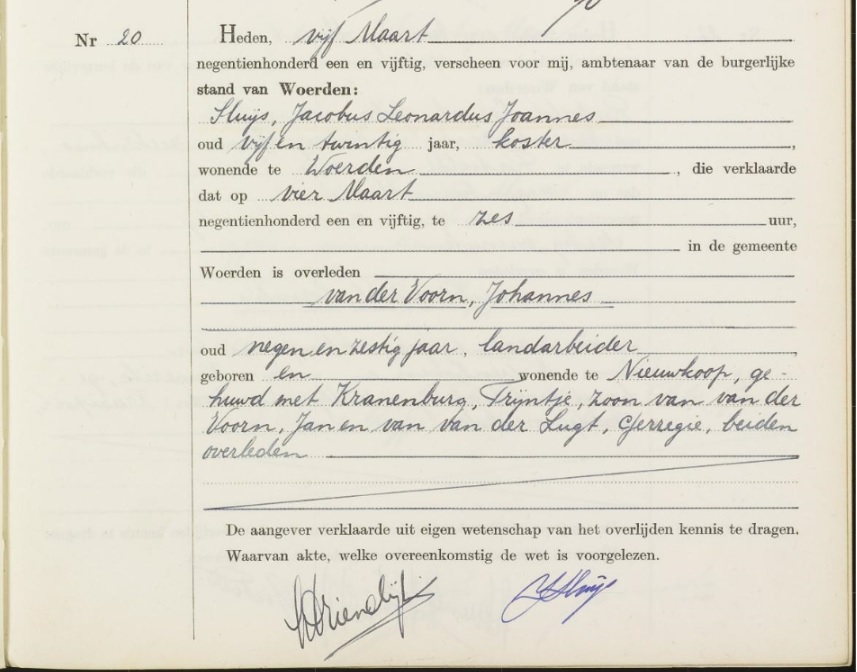 Nr 20
Heden, vijf Maart
negentienhonderd een en vijftig, verscheen voor mij, ambtenaar van de burgerlijke
stand van Woerden:
Sluijs, Jacobus Leonardus Joannes
oud vijf en twintig jaar, koster,
wonende te Woerden, die verklaarde
dat op vier Maart
negentienhonderd een en vijftig, te zes uur,
in de gemeente
Woerden is overleden
van der Voorn, Johannes
oud negen en zestig jaar, landarbeider,
geboren en wonende te Nieuwkoop, ge-
huwd met Kranenburg, Trijntje, zoon van van der
Voorn, Jan en van van der Lugt, Gerregie, beiden
overleden
De aangever verklaarde uit eigen wetenschap van het overlijden kennis te dragen.
Waarvan akte, welke overeenkomstig de wet is voorgelezen.
Sluijs